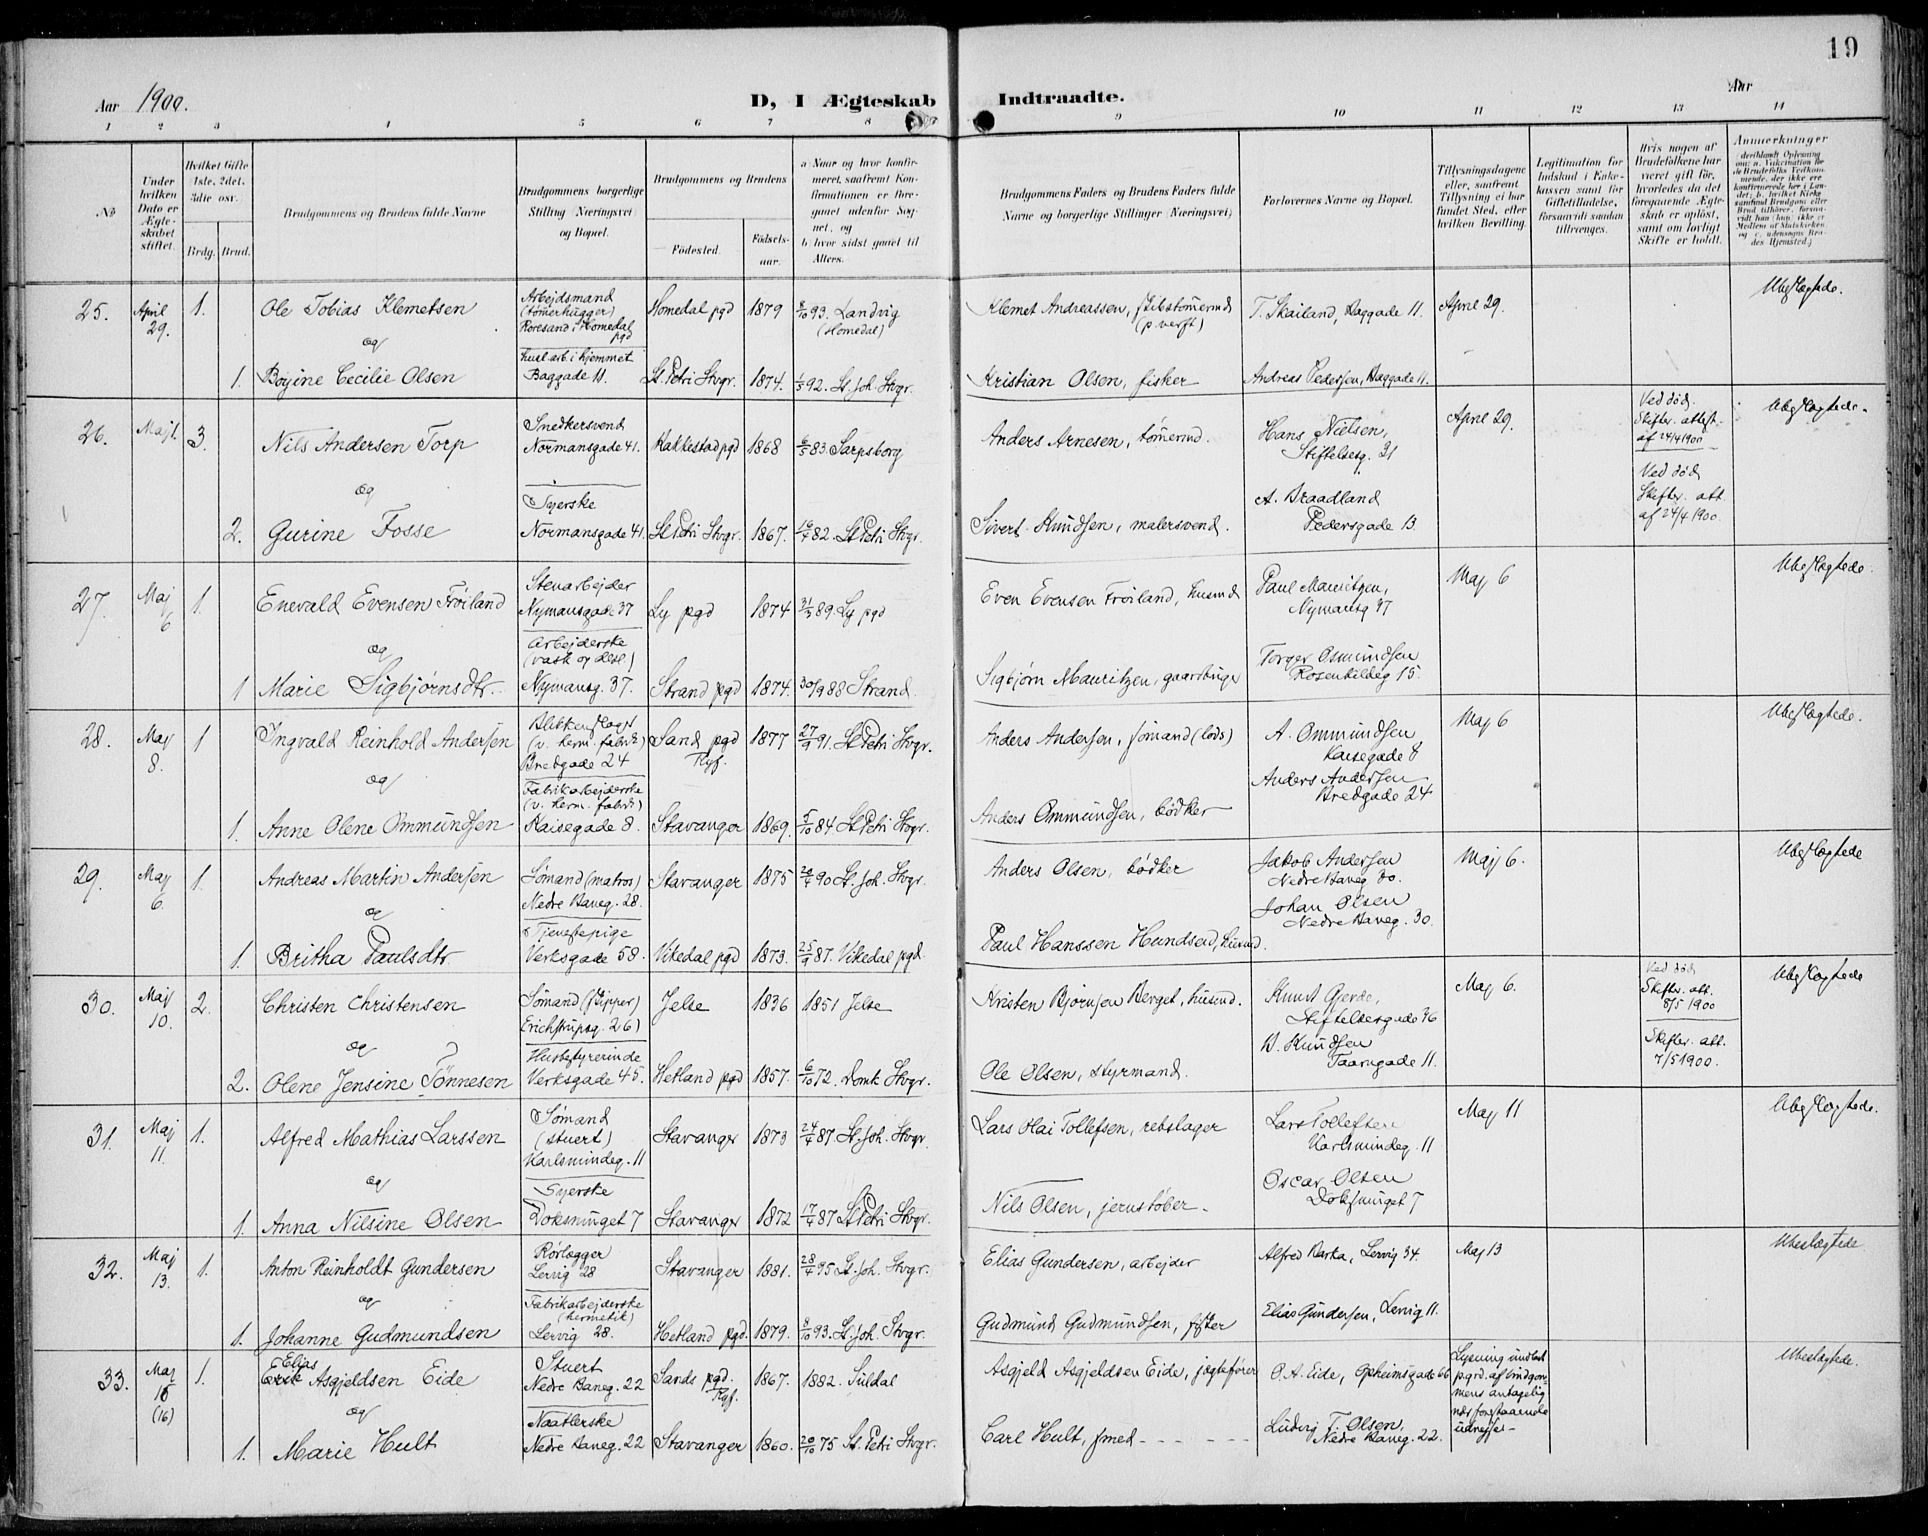 19
Aar 1900.
D, I Ægteskab Indtraadte.
Aar
1 2 3 4 5 6 7 8 9 10 11 12 13 14
No
Under hvilken Dato er Ægteskabet stiftet.
Hvilket Gifte 1ste, 2det, 3die osv.
Brdg. Brud.
Brudgommens og Brudens fulde Navne
Brudgommens borgerlige Stilling (Næringsvei) og Bopæl.
Brudgommens og Brudens
Fødested. Fødselsaar.
a. Naar og hvor konfirmeret, saafremt Konfirmationen er foregaaet udenfor Sognet, og
b. hvor sidst gaaet til Alters.
Brudgommens Faders og Brudens Faders fulde Navne og borgerlige Stillinger (Næringsvei)
Forlovernes Navne og Bopæl.
Tillysningsdagene eller, saafremt Tillysning ei har fundet Sted, efter hvilken Bevilling.
Legitimation for Indskud i Enkekassen samt for Giftetilladelse, forsaavidt saadan tiltrænges.
Hvis nogen af Brudefolkene har været gift før, hvorledes da det foregaaende Ægteskab er opløst, samt om lovligt Skifte er holdt.
Anmerkninger
25. April 29. 1. Ole Tobias Klemetsen
Arbejdsmand (tømerhugger) Roresand i Homedal pgd
Homedal pgd 1879 8/10 93. Landvig (Homedal)
Klemet Andreassen, skibstømermd (p verft)
T. Skailand, Baggade 11. April 29. Ubeslægtede.
og
1. Bojine Cecilie Olsen
husl. arb. i hjemmet Baggade 11.
St. Petri Stvgr. 1874. 1/5 92. St. Joh. Stvgr.
Kristian Olsen, fisker
Andreas Pedersen, Baggade 11.
26. Maj 1. 3. Nils Andersen Torp
Snedkersvend Normansgade 41.
Rakkestad pgd 1868 6/5 83 Sarpsborg
Anders Arnesen, tømermd.
Hans Nielsen, Stiftelsesg. 31
April 29.
Ved død. Skifter. attest. af 24/4 1900
Ubeslægtede.
og
2. Gurine Fosse
Syerske Normansgade 41.
St. Petri Stvgr. 1867. 16/4 82. St. Petri Stvgr.
Sivert Knudsen, malersvend.
A. Braadland Pedersgade 13
Ved død Skifter. att. af 24/4 1900.
27. Maj 6 1. Enevald Evensen Frøiland
Stenarbejder Nymansgade 37
Ly pgd 1874 31/3 89. Ly pgd
Even Evensen Frøiland, husmd
Paul Mauritzen, Nymansg 37
Maj 6 Ubeslægtede.
og
1 Marie Sigbjørnsdtr.
Arbejderske (vask og desl.) Nymansg. 37.
Strand pgd 1874. 30/9 88 Strand.
Sigbjørn Mauritzen, gaardbruger
Torger Osmundsen Rosenkildeg 15.
28. Maj 8. 1 Ingvald Reinhold Andersen
Blikkenslager (v. herm. fabrik) Bredgade 24
Sand pgd Ryf. 1877 27/9 91. St Petri Stvgr.
Anders Andersen, sømand (lods)
A. Ommundsen Kaisegade 8
Maj 6 Ubeslægtede.
og
1. Anne Olene Ommundsen
Fabrikarbejderske (v. herm. fabrik) Kaisegade 8.
Stavanger 1869. 5/10 84 St Petri Stvgr.
Anders Ommundsen, bødker
Anders Andersen Bredgade 24
29. Maj 6. 1. Andreas Martin Andersen
Sømand (matros) Nedre Baneg. 28.
Stavanger 1875 20/4 90 St. Joh. Stvgr.
Anders Olsen, bødker
Jakob Andersen Nedre Baneg 30.
Maj 6. Ubeslægtede
og
1. Britha Paulsdtr
Tjenestepige Verksgade 58.
Vikedal pgd 1873. 25/9 87. Vikedal pgd.
Paul Hanssen Hundseid, husmd.
Johan Olsen Nedre Baneg. 30.
30. Maj 10. 2. Christen Christensen
Sømand (skipper) Erichstrupsg. 26)
Jelse 1836 1851 Jelse
Kristen Bjørnsen Berget, husmd.
Knut Gjerde, Stiftelsesgade 36
Maj 6.
Ved død Skifter. att. 8/5 1900
Ubeslægtede
og
2. Olene Jensine Tønnesen
Husbestyrerinde Verksgade 45.
Hetland pgd 1857. 6/10 72. Domk Stvgr.
Ole Olsen, styrmand.
B. Knudsen Taarngade 11.
Skifter. att. 7/5 1900.
31. Maj 11. 1. Alfred Mathias Larssen
Sømand (stuert) Karlsmindeg. 11
Stavanger 1873 24/4 87 St. Joh. Stvgr.
Lars Olai Tollefsen, rebslager
Lars Tollefsen Karlsmindeg. 11
Maj 11 Ubeslægtede.
og
1. Anna Nilsine Olsen
Syerske Doksmuget 7
Stavanger 1872 17/4 87 St Petri Stvgr.
Nils Olsen, jernstøber.
Oscar Olsen Doksmuget 7
32. Maj 13. 1. Anton Reinholdt Gundersen
Rørlægger Lervig 28
Stavanger 1881. 28/4 95 St. Joh. Stvgr.
Elias Gundersen, arbejder
Alfred Barka, Lervig 34. Maj 13 Ubeslægtede.
og
1. Johanne Gudmundsen
Fabrikarbejderske (hermetik) Lervig 28.
Hetland pgd. 1879. 8/10 93. St. Joh. Stvgr.
Gudmund Gudmundsen, fisker
Elias Gundersen, Lervig 11.
33. Maj 15 (16) 1. Elias Asgjeldsen Eide
Stuert Nedre Baneg. 22
Sands pgd. Ryf. 1867. 1882. Suldal
Asgjeld Asgjeldsen Eide, jægtefører
O. A. Eide, Opheimsgade 66
Lysning undladt pgrd. af brudgommens antagelig nær forestaaende udrejse.
Ubeslægtede.
og
1. Marie Hult
Naatlerske Nedre Baneg. 22
Stavanger 1860. 20/10 75 St. Petri Stvgr.
Carl Hult, smed
Ludvig T. Olsen, Nedre Baneg. 22.